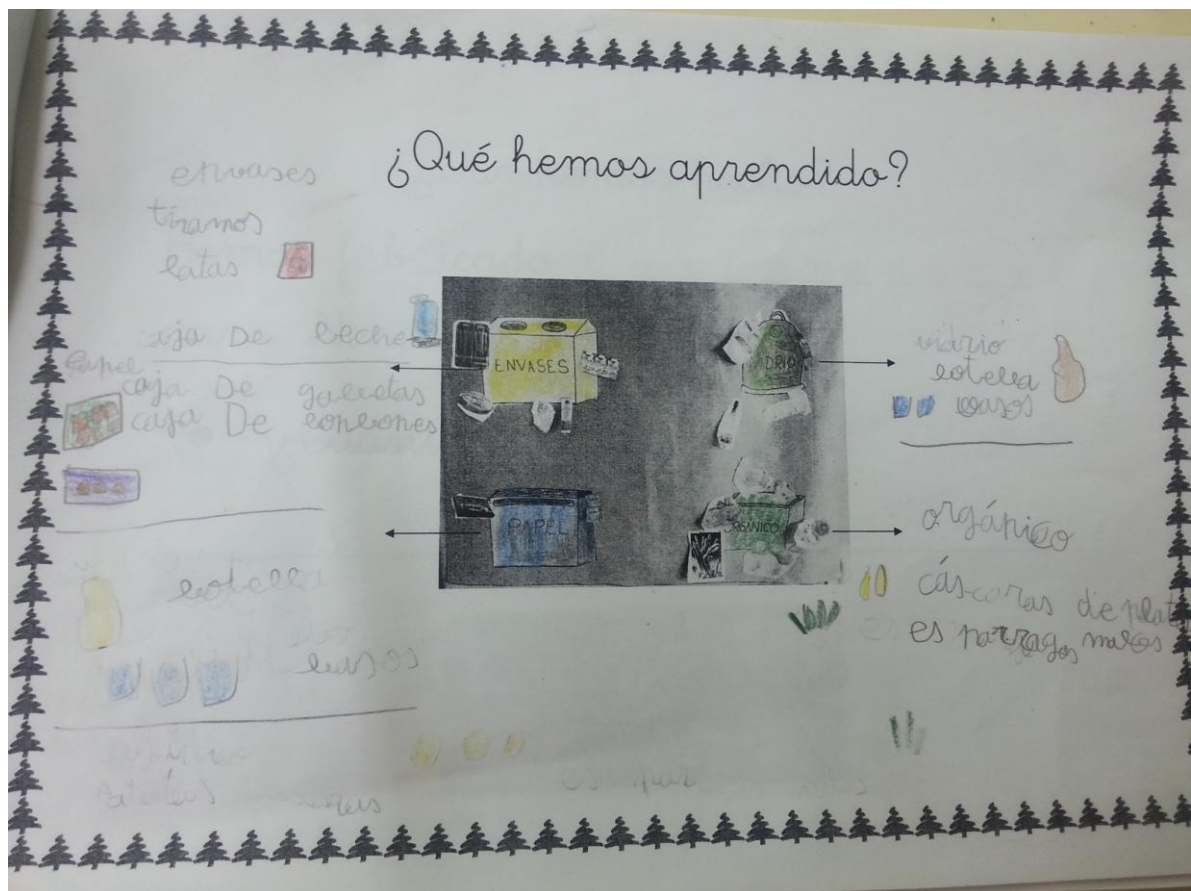 ¿Qué hemos aprendido?
envases
tiramos
latas
caja De leche
Papel
caja De galletas
caja De bonbones
botella
vasos
Patatas
ENVASES
VIDRIO
PAPEL
ORGÁNICO
vidrio
botella
vasos
orgánico
cáscaras de plat
es parragos